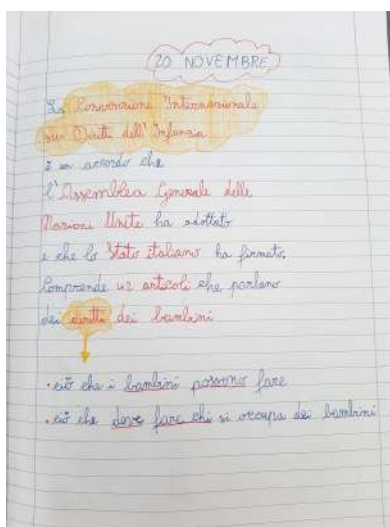 20 NOVEMBRE
La Convenzione Internazionale
sui Diritti dell'Infanzia
è un accordo che
l'Assemblea Generale delle
Nazioni Unite ha adottato
e che lo Stato italiano ha firmato.
Comprende 42 articoli che parlano
dei diritti dei bambini
• ciò che i bambini possono fare
• ciò che deve fare chi si occupa dei bambini